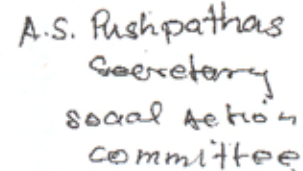 A.S. Pushpathas
Secretary
Social Action
Committee